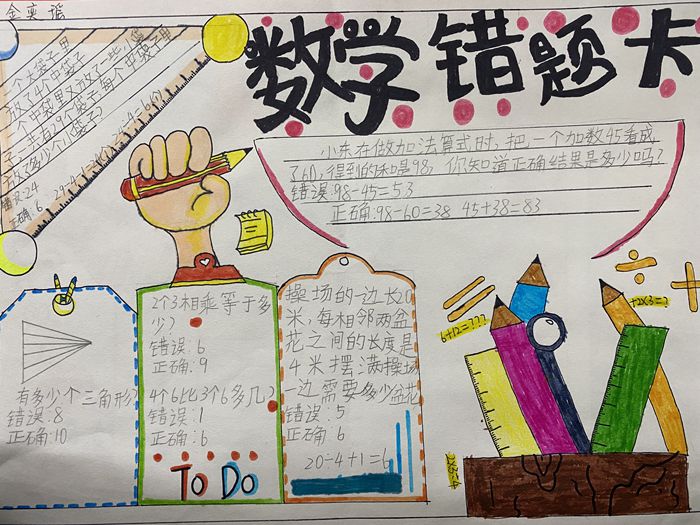 金奕谣
数学错题卡
一个大袋子里
放了4个中袋子
一个中袋里又放了一些小袋
子,共有29个袋子,每个中袋子里
放了多少个小袋子?
错误:24
正确:6
小东在做加法算式时,把一个加数45看成
了60,得到的和是98,你知道正确结果是多少吗?
错误:98-45=53
正确:98-60=38 45+38=83
有多少个三角形?
错误:8
正确:10
2个3相乘等于多
少?
错误:6
正确:9
4个6比3个6多几?
错误:1
正确:6
TO DO
操场的一边长20
米,每相邻两盆
花之间的长度是
4米摆满操场
一边需要多少盆花
错误:5
正确6
20÷4+1=6
6+12=???
+2×3=?